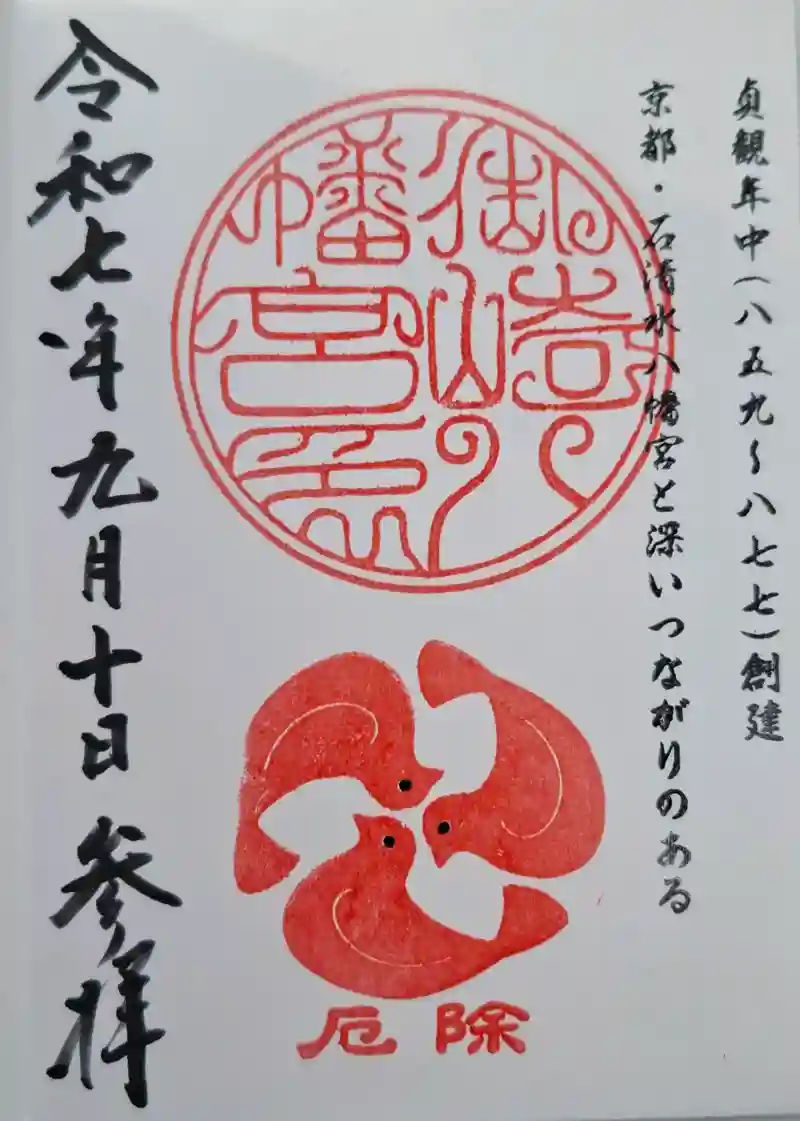 貞観年中(八五九〜八七七)創建
京都・石清水八幡宮と深いつながりのある
御崎八幡宮
厄除
令和七年九月十日 参拝